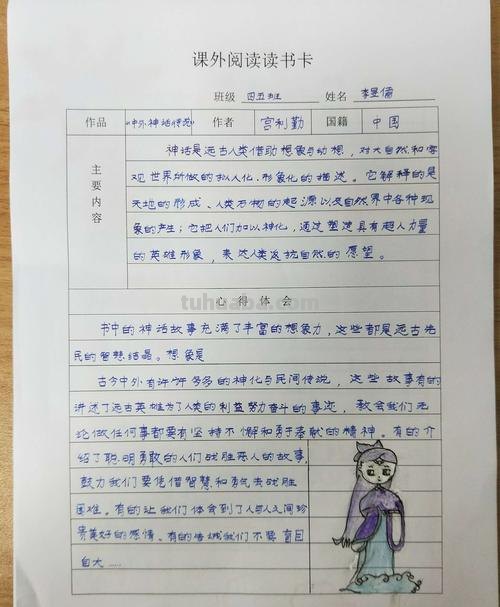 课外阅读读书卡
班级 四五班 姓名 李昱儒
作品 《中外神话传说》 作者 宫利勤 国籍 中国
主要内容
神话是远古人类借助想象与幻想，对大自然和客
观世界所做的拟人化.形象化的描述。它解释的是
天地的形成、人类万物的起源以及自然界中各种现
象的产生；它把人们加以神化，通过塑造具有超人力量
的英雄形象，表达人类反抗自然的愿望。
心得体会
tuhuaba.com
书中的神话故事充满了丰富的想象力，这些都是远古先
民的智慧结晶。想象是
古今中外有许许多多的神化与民间传说，这些故事有的
讲述了远古英雄为了人类的利益努力奋斗的事迹，教会我们无
论做任何事都要有坚持不懈和勇于奉献的精神。有的介
绍了聪明勇敢的人们战胜恶人的故事，
鼓力我们要凭借智慧和勇气去战胜
困难。有的让我们体会到了人与人之间珍
贵美好的感情。有的告诫我们不要盲目
自大……